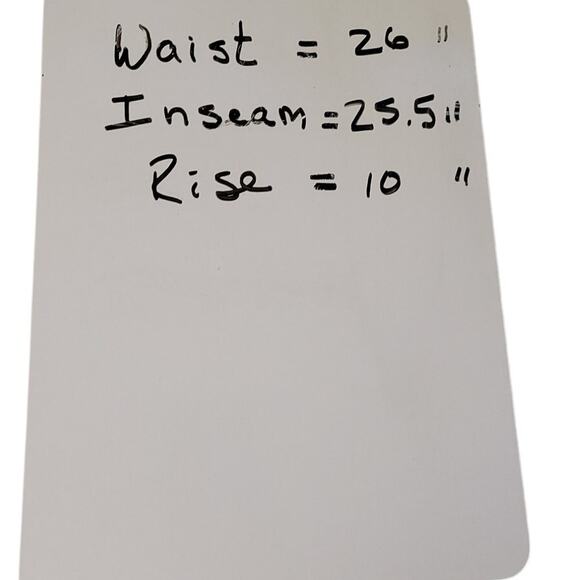 Waist = 26 "
Inseam = 25.5"
Rise = 10 "